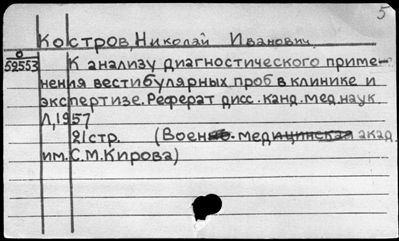 5
Костров, Николай Иванович.
о
52553
К анализу диагностического приме-
нения вестибулярных проб в клинике и
экспертизе. Реферат дисс. канд. мед. наук.
Л, 1957
21 стр. (Воен. медицинская акад.
им. С.М. Кирова)